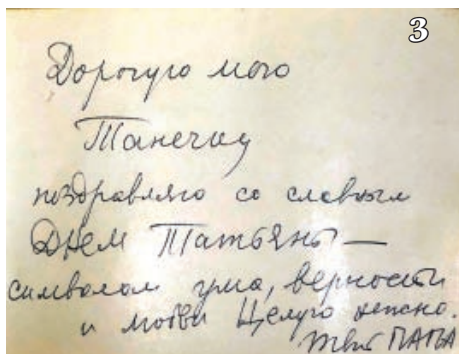 3
Дорогую мою
Танечку
поздравляю со славным
Днем Татьяны —
символом ума, верности
и любви Целую нежно.
Твой ПАПА